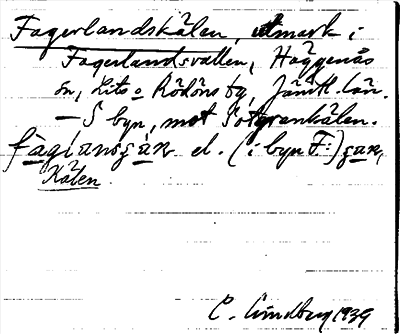 Fagerlandskälen, utmark i
Fagerlandsvallen, Häggenås
sn, Lits o Rödöns tg, Jämtl. län.
— S byn, mot Sötgranskälen.
fàglansçàn el. (i byn F:) çan,
Kälen.
C. Lindberg 1939